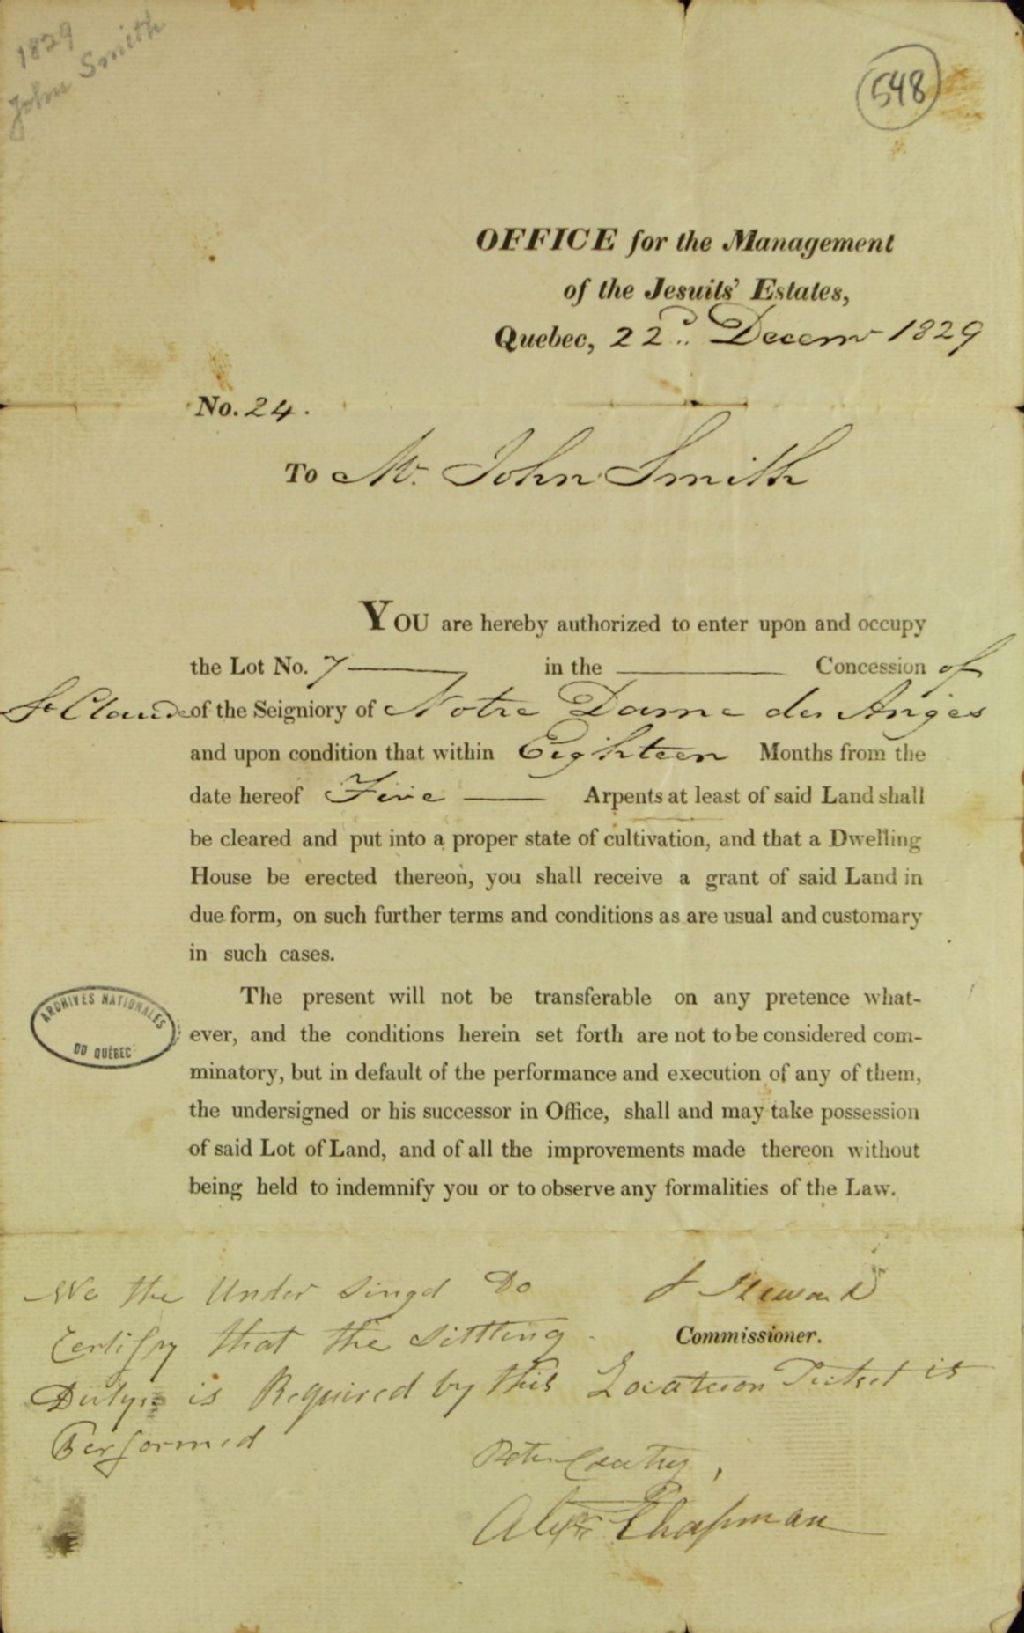 1829
John Smith
548
OFFICE for the Management
of the Jesuits' Estates,
Quebec, 22d. Decemr 1829
No. 24.
To Mr. John Smith
YOU are hereby authorized to enter upon and occupy
the Lot No. 7 in the Concession of
St Claude of the Seigniory of Notre Dame des Anges
and upon condition that within Eighteen Months from the
date hereof Five Arpents at least of said Land shall
be cleared and put into a proper state of cultivation, and that a Dwelling
House be erected thereon, you shall receive a grant of said Land in
due form, on such further terms and conditions as are usual and customary
in such cases.
The present will not be transferable on any pretence what-
ever, and the conditions herein set forth are not to be considered com-
minatory, but in default of the performance and execution of any of them,
the undersigned or his successor in Office, shall and may take possession
of said Lot of Land, and of all the improvements made thereon without
being held to indemnify you or to observe any formalities of the Law.
ARCHIVES NATIONALES
DU QUÉBEC
J Steward
Commissioner.
We the Under Singd Do
Certifpy that the Sittling
Dutys is Required by this Location Ticket is
Performed
Peter
Alexr Chapman